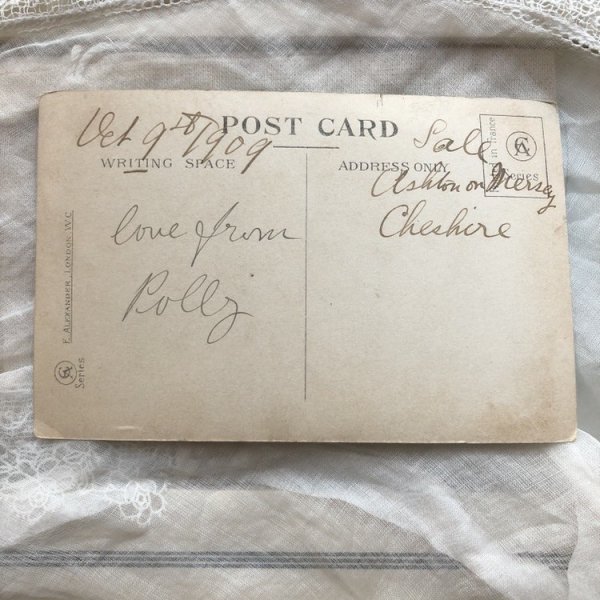 Oct 9th 1909
POST CARD
WRITING SPACE
ADDRESS ONLY
Sale
Ashton on Mersey
Cheshire
love from
Polly
E. ALEXANDER, LONDON, W.C.
Series
in France
Series